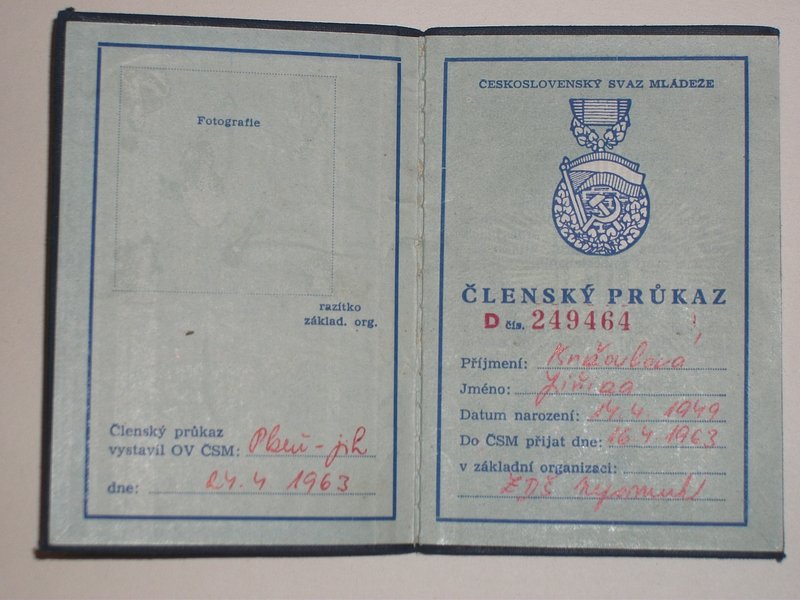 Fotografie
razítko
základ. org.
Členský průkaz
vystavil OV ČSM: Plzeň-jih
dne: 24. 4 1963
ČESKOSLOVENSKÝ SVAZ MLÁDEŽE
ČLENSKÝ PRŮKAZ
D čís. 249464
Příjmení:
Jméno:
Datum narození: 14. 4. 1949
Do ČSM přijat dne: 16 4 1963
v základní organizaci:
ZDŠ Nepomuk